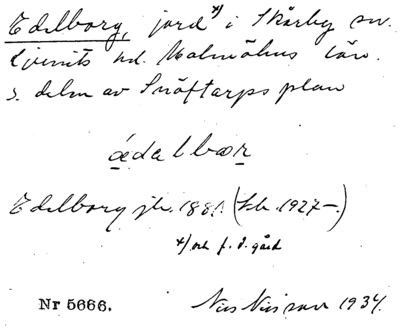 Edelborg, jord x) i Skårby sn.
Ljunits hd. Malmöhus län.
s. delen av Snöftarps plan
ædalbær
Edelborg jb. 1881. (Lb. 1927–.)
x) och f. d. gård
Nr 5666. Nils Nilsson 1934.